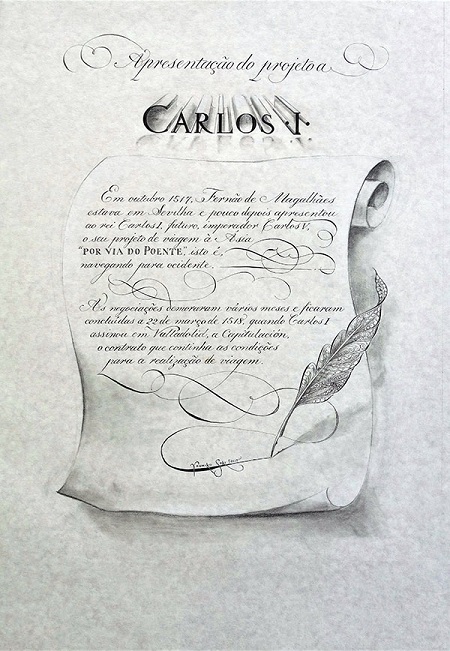 Apresentação do projeto a
CARLOS ·I·
Em outubro 1517, Fernão de Magalhães
estava em Sevilha e pouco depois apresentou
ao rei Carlos I, futuro, imperador Carlos V,
o seu projeto de viagem à Asia
"POR VIA DO POENTE", isto é,
navegando para ocidente.
As negociações demoraram vários meses e ficaram
concluídas a 22 de março de 1518, quando Carlos I
assinou em Valladolid, a Capitulación,
o contrato que continha as condições
para a realização de viagem.